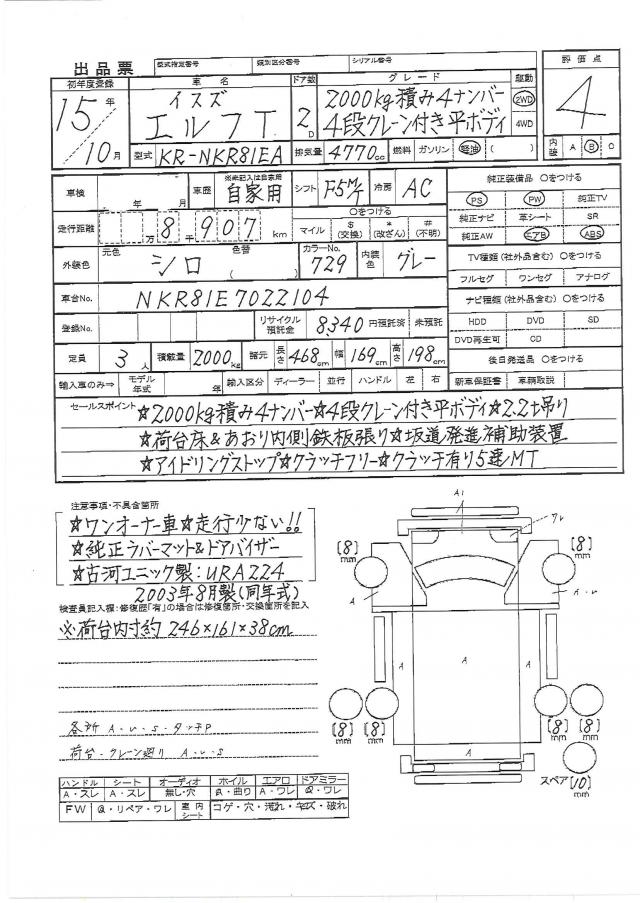 出品票 型式指定番号 類別区分番号 シリアル番号
初年度登録 車名 ドア数 グレード 駆動 評価点
15年 10月 イスズ エルフT 2D 2000kg積み4ナンバー 2WD 4
4段クレーン付き平ボディ 4WD
型式 KR-NKR81EA 排気量 4770cc 燃料 ガソリン 軽油 ( ) 内装 A B C
車検 年 月 車歴 ※未記入は自家用 自家用 シフト F5M/T 冷房 AC 純正装備品 ○をつける
PS PW 純正TV
走行距離 万 8千907km ○をつける マイル $(交換) *(改ざん) #(不明) 純正ナビ 革シート SR
純正AW エアB ABS
外装色 元色 シロ 色替( ) カラーNo. 729 内装色 グレー TV種類(社外品含む)○をつける
フルセグ ワンセグ アナログ
車台No. NKR81E7022104 ナビ種類(社外品含む)○をつける
登録No. リサイクル預託金 8,340円預託済 未預託 HDD DVD SD
DVD再生可 CD
定員 3人 積載量 2000kg 諸元 長さ468cm 幅169cm 高さ198cm 後日発送品 ○をつける
輸入車のみ⇒ モデル年式 年 輸入区分 ディーラー 並行 ハンドル 左 右 新車保証書 車輌取説
セールスポイント
☆2000kg積み4ナンバー☆4段クレーン付き平ボディ☆2.2t吊り
☆荷台床&あおり内側鉄板張り☆坂道発進補助装置
☆アイドリングストップ☆クラッチフリー☆クラッチ有り5速MT
注意事項・不具合箇所
☆ワンオーナー車☆走行少ない!!
☆純正ラバーマット&ドアバイザー
☆古河ユニック製:URA224
2003年8月製(同年式)
検査員記入欄:修復歴「有」の場合は修復箇所・交換箇所を記入
※荷台内寸約246×161×38cm
各所 A・U・S・タッチP
荷台・クレーン廻り A・U・S
ハンドル シート オーディオ ホイル エアロ ドアミラー
A・スレ A・スレ 無し・穴 A・曲り A・ワレ Q・ワレ
FW Q・リペア・ワレ 室内シート コゲ・穴・汚れ・キズ・破れ
A1
ワレ
[8]mm [8]mm
A A・U
A A A
[8]mm [8]mm [8]mm [8]mm
A
スペア[10]mm